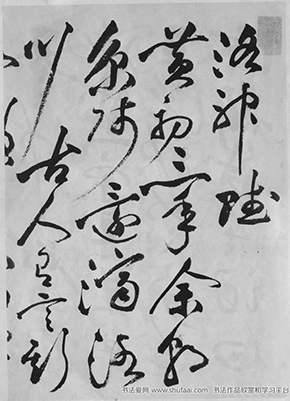 洛神賦
黃初三年余朝
京師還濟洛
川古人有言斯
书法爱网 www.shufaai.com 书法作品欣赏和学习平台